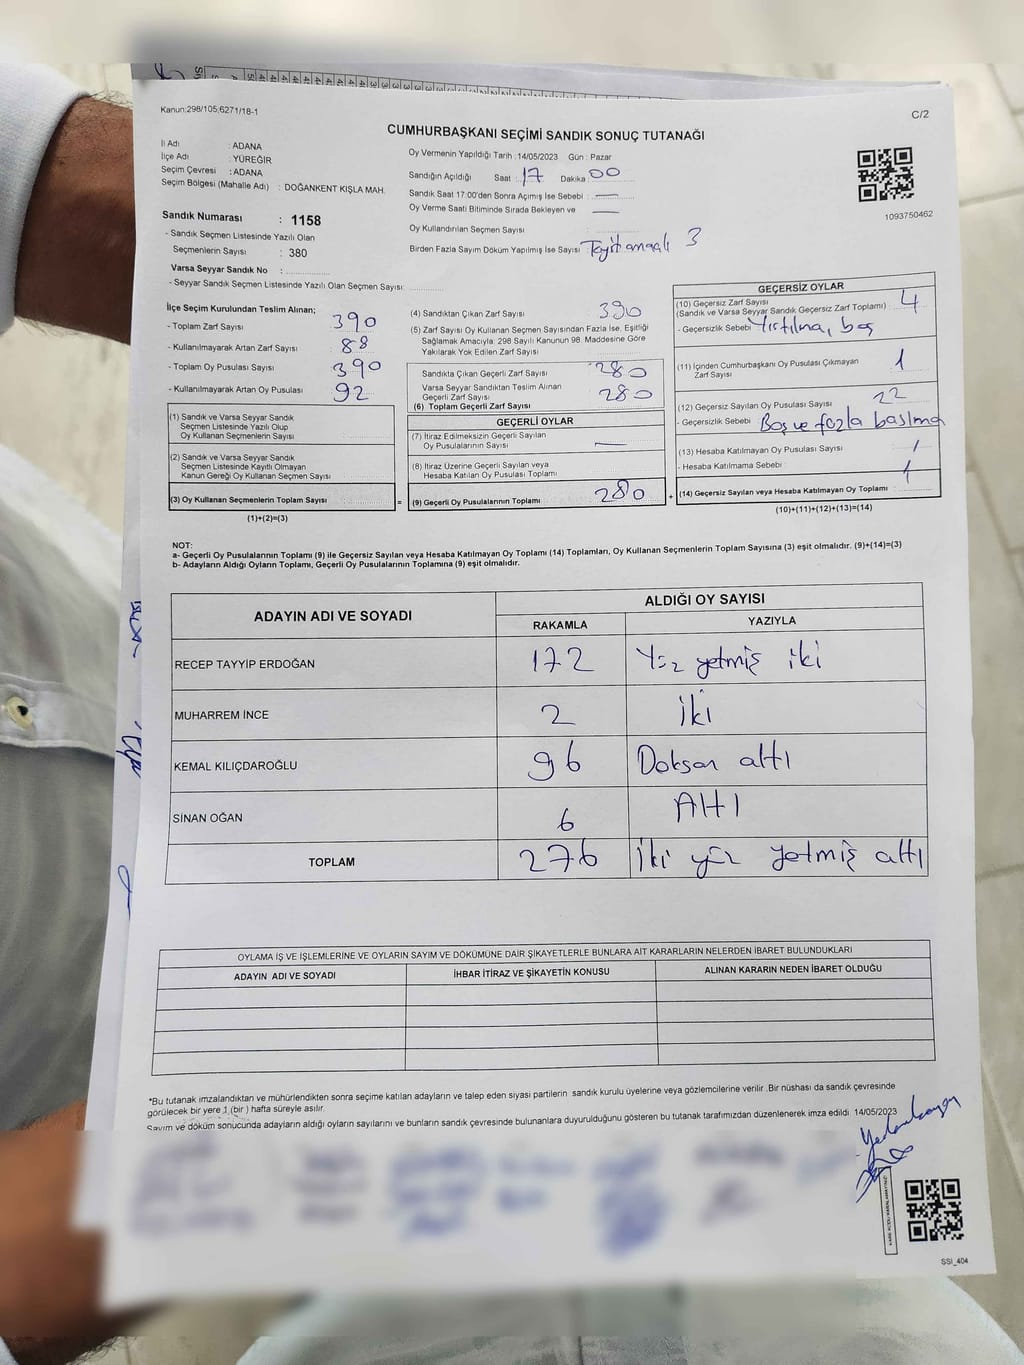 Kanun:298/105,6271/18-1
C/2
CUMHURBAŞKANI SEÇİMİ SANDIK SONUÇ TUTANAĞI
İl Adı : ADANA
İlçe Adı : YÜREĞİR
Seçim Çevresi : ADANA
Seçim Bölgesi (Mahalle Adı) : DOĞANKENT KIŞLA MAH.
Sandık Numarası : 1158
- Sandık Seçmen Listesinde Yazılı Olan
Seçmenlerin Sayısı : 380
Varsa Seyyar Sandık No :
- Seyyar Sandık Seçmen Listesinde Yazılı Olan Seçmen Sayısı:
Oy Vermenin Yapıldığı Tarih :14/05/2023 Gün : Pazar
Sandığın Açıldığı Saat : 17 Dakika : 00
Sandık Saat 17:00'den Sonra Açımış İse Sebebi : —
Oy Verme Saati Bitiminde Sırada Bekleyen ve —
Oy Kullandırılan Seçmen Sayısı
Birden Fazla Sayım Döküm Yapılmış İse Sayısı 3
1093750462
İlçe Seçim Kurulundan Teslim Alınan;
- Toplam Zarf Sayısı 390
- Kullanılmayarak Artan Zarf Sayısı 88
- Toplam Oy Pusulası Sayısı 390
- Kullanılmayarak Artan Oy Pusulası 92
(1) Sandık ve Varsa Seyyar Sandık
Seçmen Listesinde Yazılı Olup
Oy Kullanan Seçmenlerin Sayısı
(2) Sandık ve Varsa Seyyar Sandık
Seçmen Listesinde Kayıtlı Olmayan
Kanun Gereği Oy Kullanan Seçmen Sayısı
(3) Oy Kullanan Seçmenlerin Toplam Sayısı =
(1)+(2)=(3)
(4) Sandıktan Çıkan Zarf Sayısı 390
(5) Zarf Sayısı Oy Kullanan Seçmen Sayısından Fazla İse, Eşitliği
Sağlamak Amacıyla; 298 Sayılı Kanunun 98. Maddesine Göre
Yakılarak Yok Edilen Zarf Sayısı
Sandıkta Çıkan Geçerli Zarf Sayısı 280
Varsa Seyyar Sandıktan Teslim Alınan
Geçerli Zarf Sayısı 280
(6) Toplam Geçerli Zarf Sayısı
GEÇERLİ OYLAR
(7) İtiraz Edilmeksizin Geçerli Sayılan
Oy Pusulalarının Sayısı —
(8) İtiraz Üzerine Geçerli Sayılan veya
Hesaba Katılan Oy Pusulası Toplamı
(9) Geçerli Oy Pusulalarının Toplamı 280 +
GEÇERSİZ OYLAR
(10) Geçersiz Zarf Sayısı 4
(Sandık ve Varsa Seyyar Sandık Geçersiz Zarf Toplamı)
- Geçersizlik Sebebi Yırtılma, boş
(11) İçinden Cumhurbaşkanı Oy Pusulası Çıkmayan 1
Zarf Sayısı
(12) Geçersiz Sayılan Oy Pusulası Sayısı 22
- Geçersizlik Sebebi Boş ve fazla basılma
(13) Hesaba Katılmayan Oy Pusulası Sayısı 1
- Hesaba Katılmama Sebebi
(14) Geçersiz Sayılan veya Hesaba Katılmayan Oy Toplamı 1
(10)+(11)+(12)+(13)=(14)
NOT:
a- Geçerli Oy Pusulalarının Toplamı (9) ile Geçersiz Sayılan veya Hesaba Katılmayan Oy Toplamı (14) Toplamları, Oy Kullanan Seçmenlerin Toplam Sayısına (3) eşit olmalıdır. (9)+(14)=(3)
b- Adayların Aldığı Oyların Toplamı, Geçerli Oy Pusulalarının Toplamına (9) eşit olmalıdır.
ADAYIN ADI VE SOYADI
ALDIĞI OY SAYISI
RAKAMLA YAZIYLA
RECEP TAYYİP ERDOĞAN 172 Yüz yetmiş iki
MUHARREM İNCE 2 iki
KEMAL KILIÇDAROĞLU 96 Doksan altı
SİNAN OĞAN 6 Altı
TOPLAM 276 iki yüz yetmiş altı
OYLAMA İŞ VE İŞLEMLERİNE VE OYLARIN SAYIM VE DÖKÜMÜNE DAİR ŞİKAYETLERLE BUNLARA AİT KARARLARIN NELERDEN İBARET BULUNDUKLARI
ADAYIN ADI VE SOYADI İHBAR İTİRAZ VE ŞİKAYETİN KONUSU ALINAN KARARIN NEDEN İBARET OLDUĞU
*Bu tutanak imzalandıktan ve mühürlendikten sonra seçime katılan adayların ve talep eden siyasi partilerin sandık kurulu üyelerine veya gözlemcilerine verilir .Bir nüshası da sandık çevresinde
görülecek bir yere 1 (bir) hafta süreyle asılır.
Sayım ve döküm sonucunda adayların aldığı oyların sayılarını ve bunların sandık çevresinde bulunanlara duyurulduğunu gösteren bu tutanak tarafımızdan düzenlenerek imza edildi. 14/05/2023
SSI_404